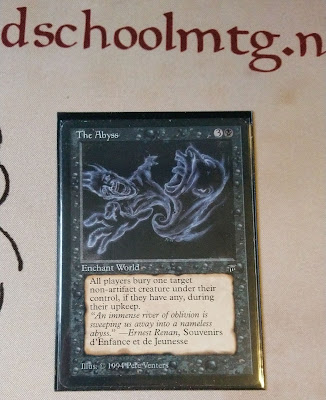 dschoolmtg.n
The Abyss
3
Enchant World
All players bury one target
non-artifact creature under their
control, if they have any, during
their upkeep.
"An immense river of oblivion is
sweeping us away into a nameless
abyss." —Ernest Renan, Souvenirs
d'Enfance et de Jeunesse
Illus. © 1994 Pete Venters